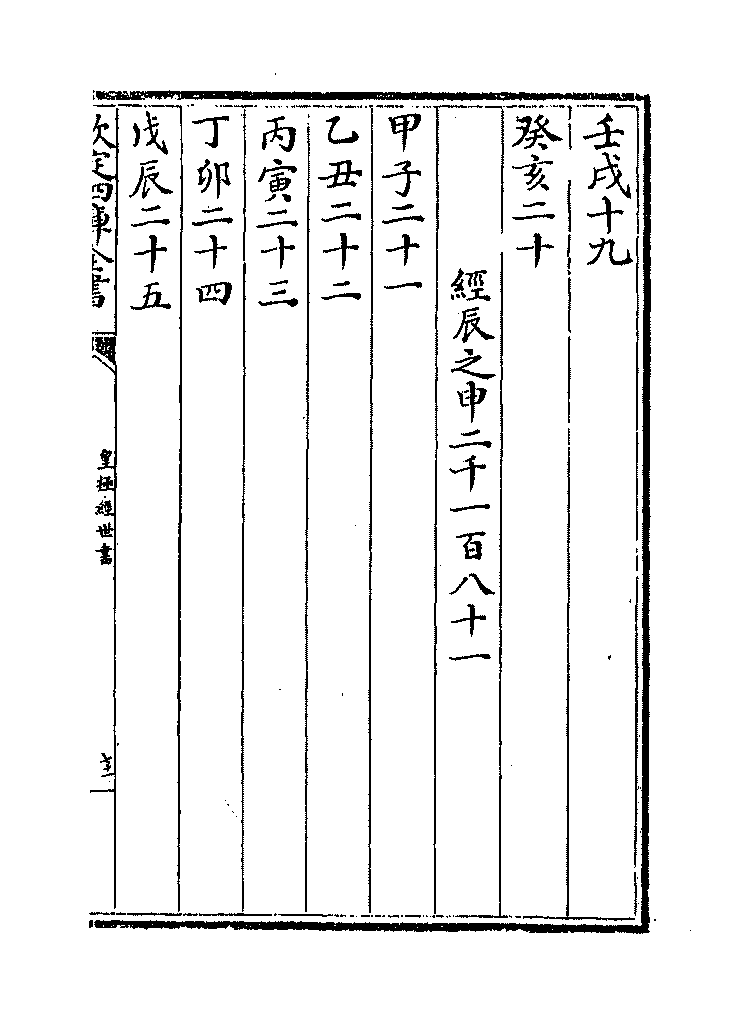 壬戌十九
癸亥二十
經辰之申二千一百八十一
甲子二十一
乙丑二十二
丙寅二十三
丁卯二十四
戊辰二十五
欽定四庫全書
皇極經世書